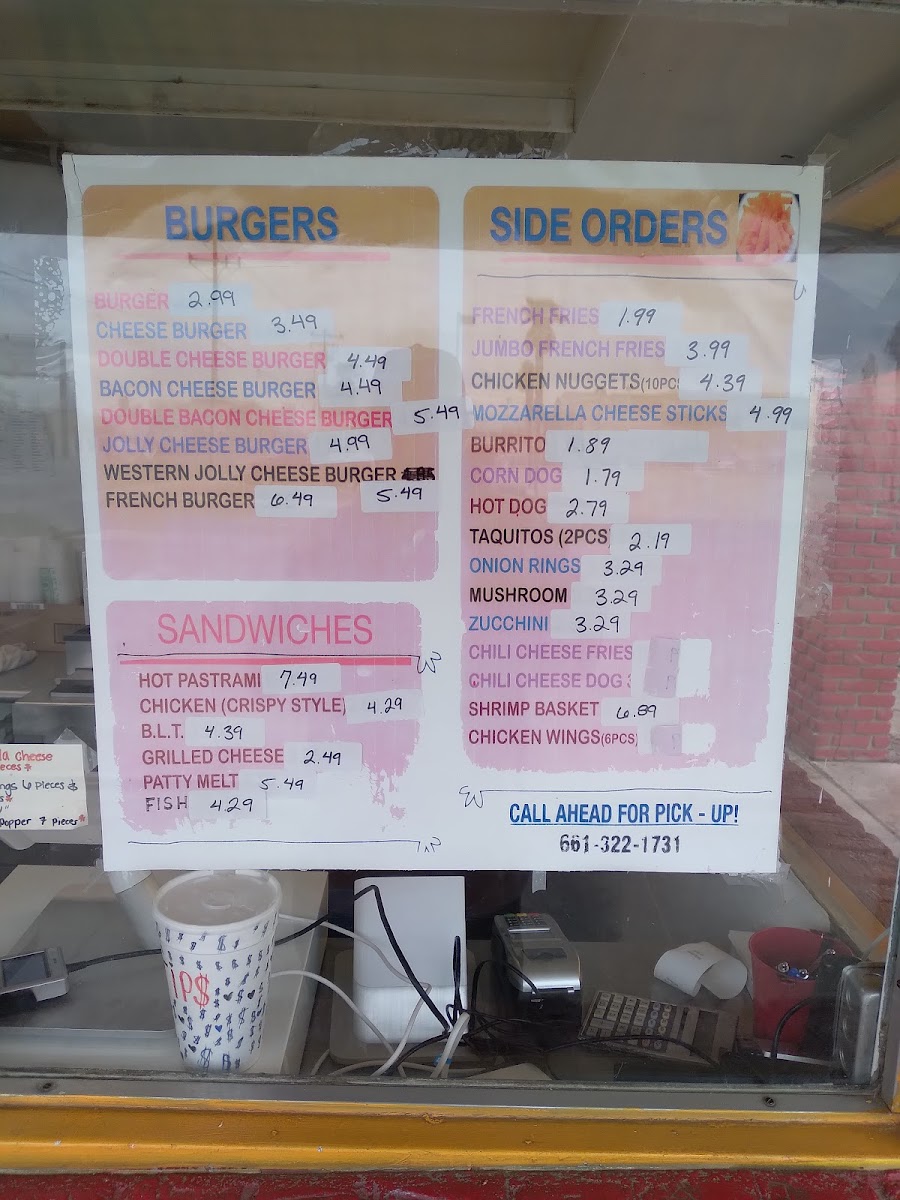 BURGERS
BURGER 2.99
CHEESE BURGER 3.49
DOUBLE CHEESE BURGER 4.49
BACON CHEESE BURGER 4.49
DOUBLE BACON CHEESE BURGER 5.49
JOLLY CHEESE BURGER 4.99
WESTERN JOLLY CHEESE BURGER
FRENCH BURGER 6.49 5.49
SANDWICHES
HOT PASTRAMI 7.49
CHICKEN (CRISPY STYLE) 4.29
B.L.T. 4.39
GRILLED CHEESE 2.49
PATTY MELT 5.49
FISH 4.29
SIDE ORDERS
FRENCH FRIES 1.99
JUMBO FRENCH FRIES 3.99
CHICKEN NUGGETS(10PC 4.39
MOZZARELLA CHEESE STICKS 4.99
BURRITO 1.89
CORN DOG 1.79
HOT DOG 2.79
TAQUITOS (2PCS 2.19
ONION RINGS 3.29
MUSHROOM 3.29
ZUCCHINI 3.29
CHILI CHEESE FRIES
CHILI CHEESE DOG
SHRIMP BASKET 6.89
CHICKEN WINGS(6PCS)
CALL AHEAD FOR PICK - UP!
661-322-1731
la Cheese
eces
ngs 6 pieces
Popper 7 pieces
iPS